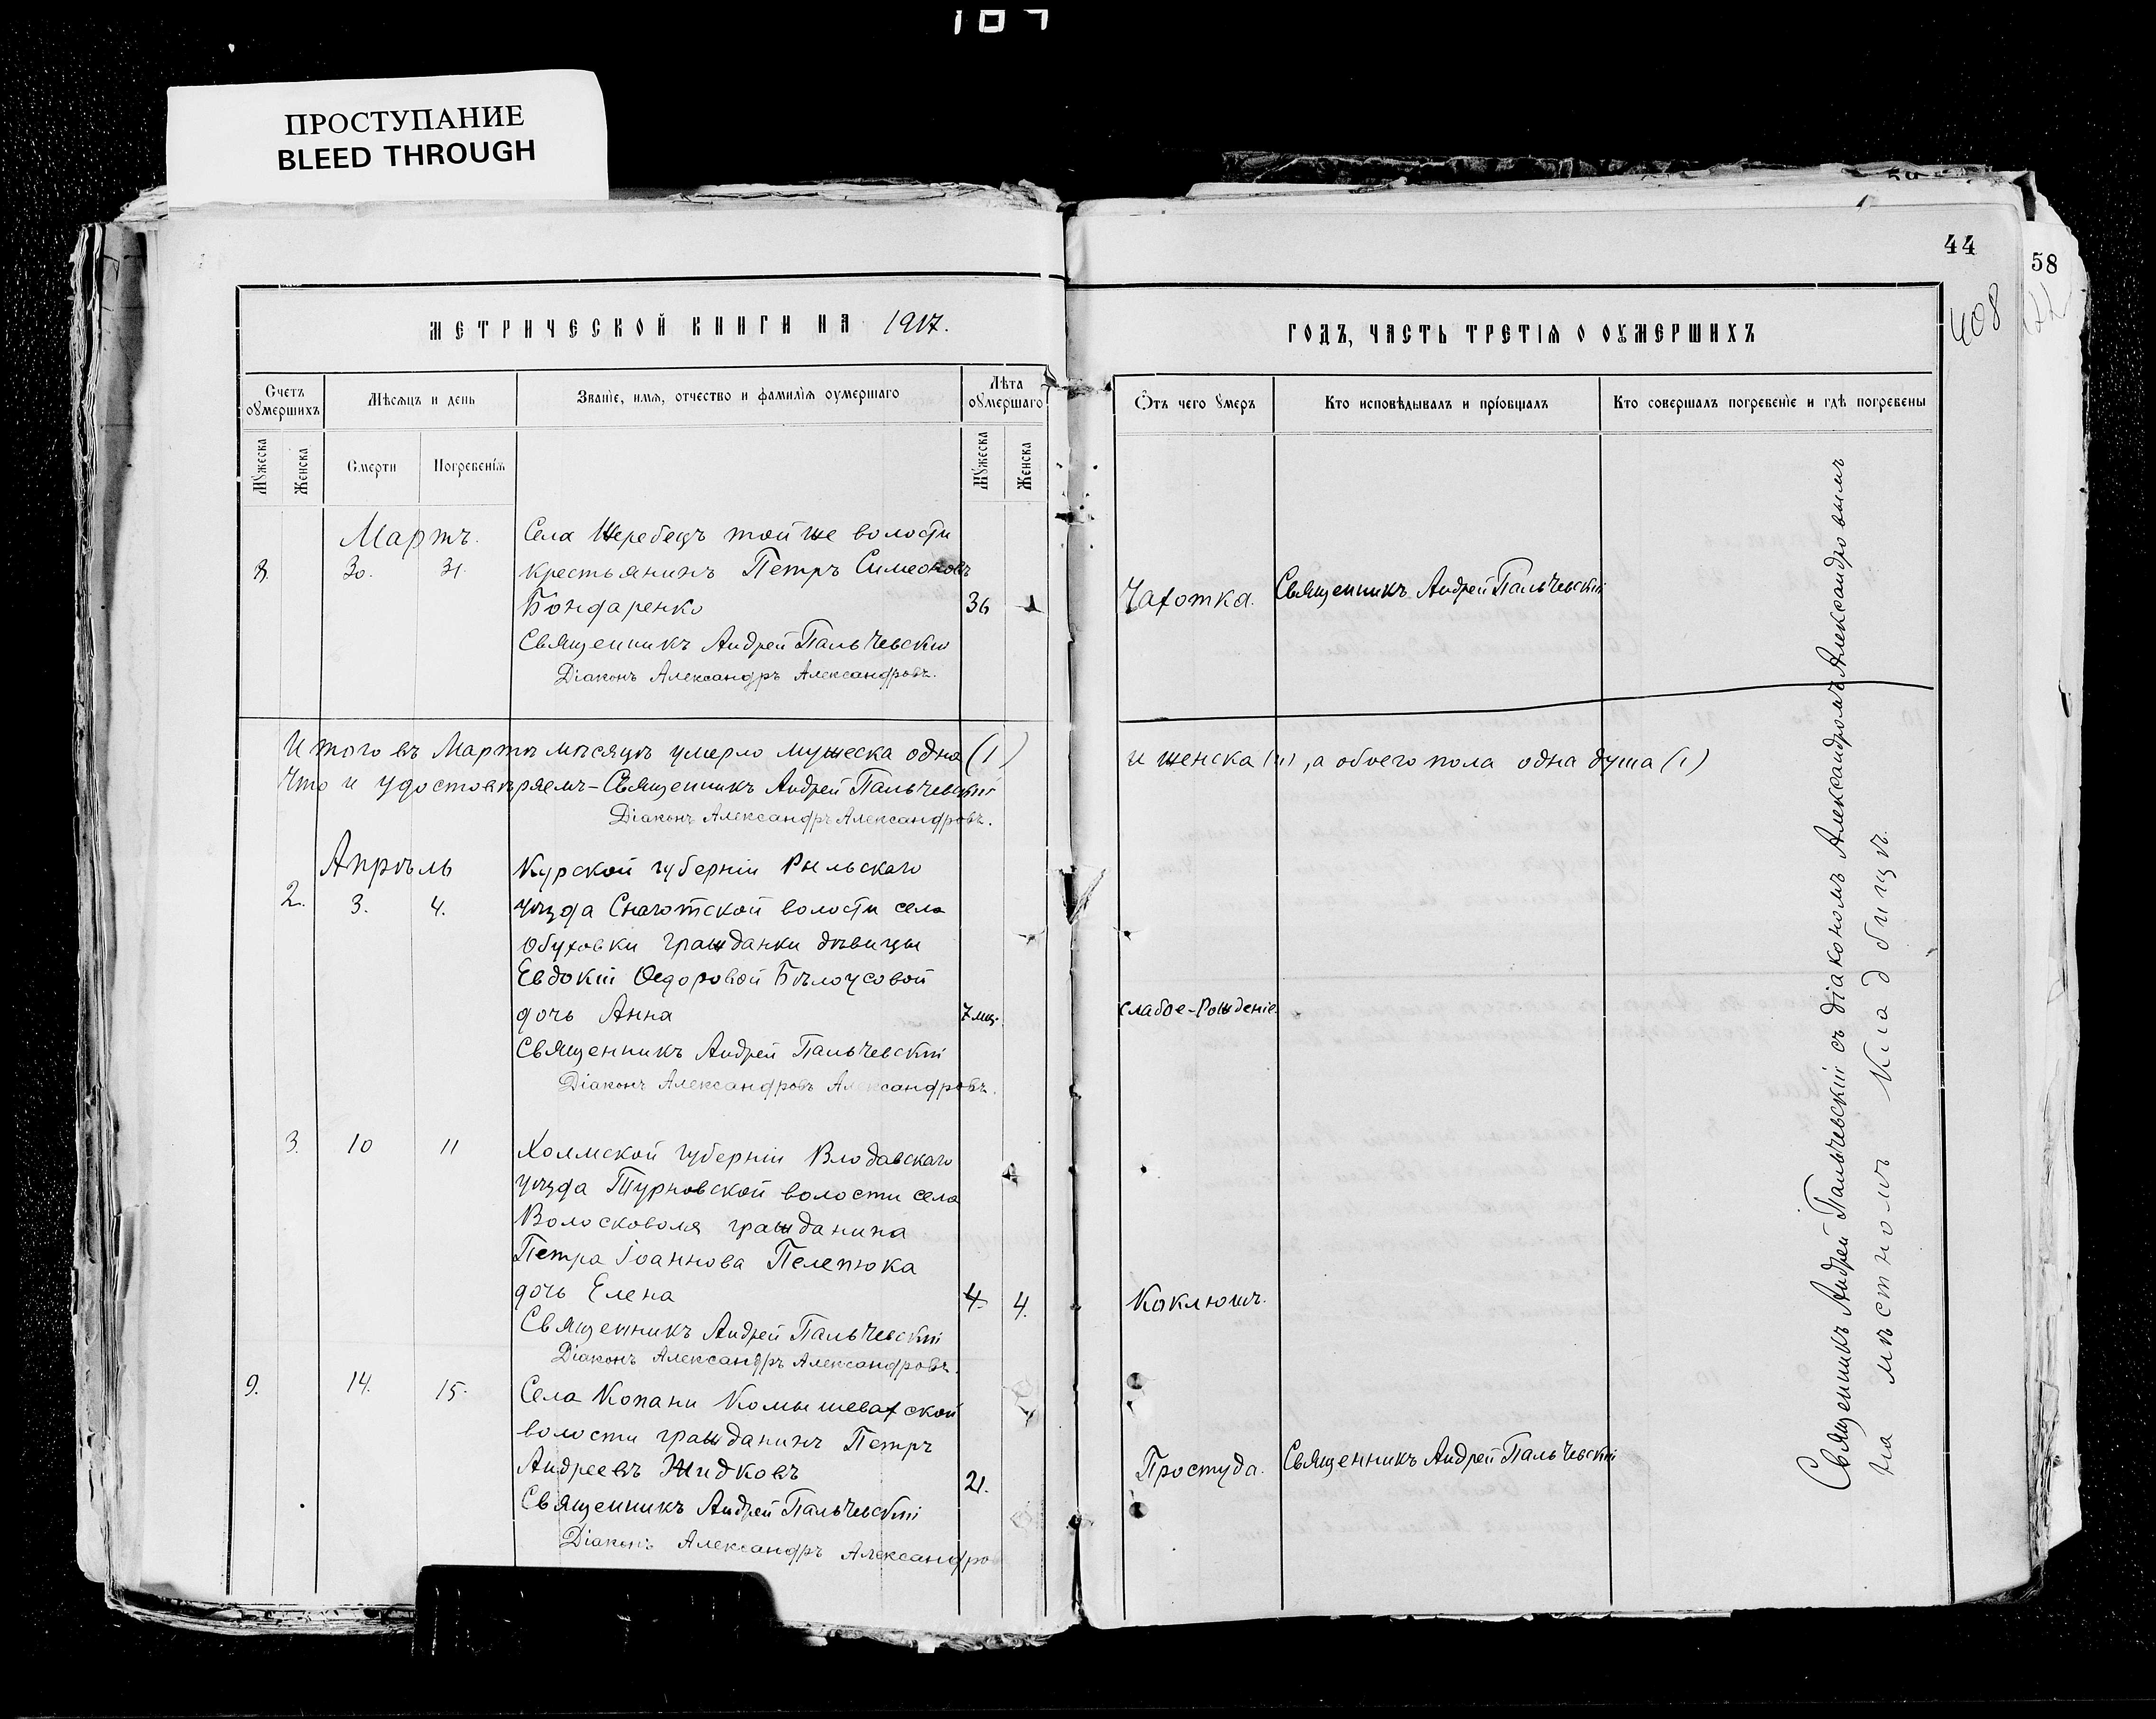 107
ПРОСТУПАНИЕ
BLEED THROUGH
44
58
408
МЕТРИЧЕСКОЙ КНИГИ НА 1917.
ГОДЪ, ЧАСТЬ ТРЕТІѦ О ОУМЕРШИХЪ
Счетъ оумершихъ
Мѣсяцъ и день
Званіе, имя, отчество и фамилія оумершаго
Лѣта оумершаго
Отъ чего умеръ
Кто исповѣдывалъ и пріобщалъ
Кто совершалъ погребеніе и гдѣ погребены
Мужеска
Женска
Смерти
Погребенія
Мужеска
Женска
Мартъ. Села Жеребецъ той же волости
8. 30. 31. крестьянинъ Петръ Симеоновъ
Бондаренко 36 Чахотка. Священникъ Андрей Пальчевскій
Священникъ Андрей Пальчевскій
Діаконъ Александръ Александровъ.
Итого въ Мартѣ мѣсяцѣ умерло мужеска одна (1) и женска (н), а обоего пола одна душа (1)
Что и удостовѣряемъ - Священникъ Андрей Пальчевскій
Діаконъ Александръ Александровъ.
Апрѣль Курской губерніи Рыльскаго
2. 3. 4. уѣзда Снаготской волости села
Обуховки гражданки дѣвицы
Евдокіи Ѳедоровой Бѣлоусовой
дочь Анна 7 мц. слабое-Рожденіе.
Священникъ Андрей Пальчевскій
Діаконъ Александровъ Александровъ.
3. 10 11 Холмской губерніи Влодавскаго
уѣзда Турновской волости села
Волосковоля гражданина
Петра Іоаннова Пелепюка
дочь Елена 4. 4. Коклюшъ.
Священникъ Андрей Пальчевскій
Діаконъ Александръ Александровъ.
9. 14. 15. Села Копани Комышевахской
волости гражданинъ Петръ
Андреевъ Жидковъ 21. Простуда. Священникъ Андрей Пальчевскій
Священникъ Андрей Пальчевскій
Діаконъ Александръ Александро
Священникъ Андрей Пальчевскій съ діакономъ Александромъ Александровымъ
на мѣстномъ кладбищѣ.